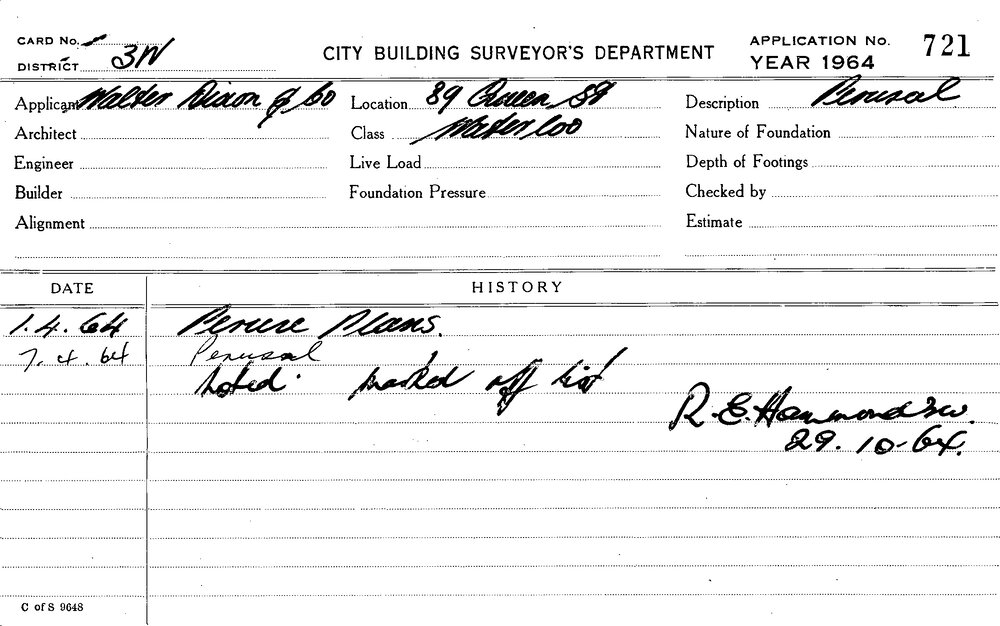 CARD No.
DISTRICT 3N
CITY BUILDING SURVEYOR'S DEPARTMENT
APPLICATION No. 721
YEAR 1964
Applicant Walter Dixon & Co Location 89 Queen St Description Perusal
Architect Class Waterloo Nature of Foundation
Engineer Live Load Depth of Footings
Builder Foundation Pressure Checked by
Alignment Estimate
DATE HISTORY
1.4.64 Peruse Plans.
7.4.64 Perusal
Noted. Marked off list
R.E. Hammond 3W.
29.10-64.
C of S 9648